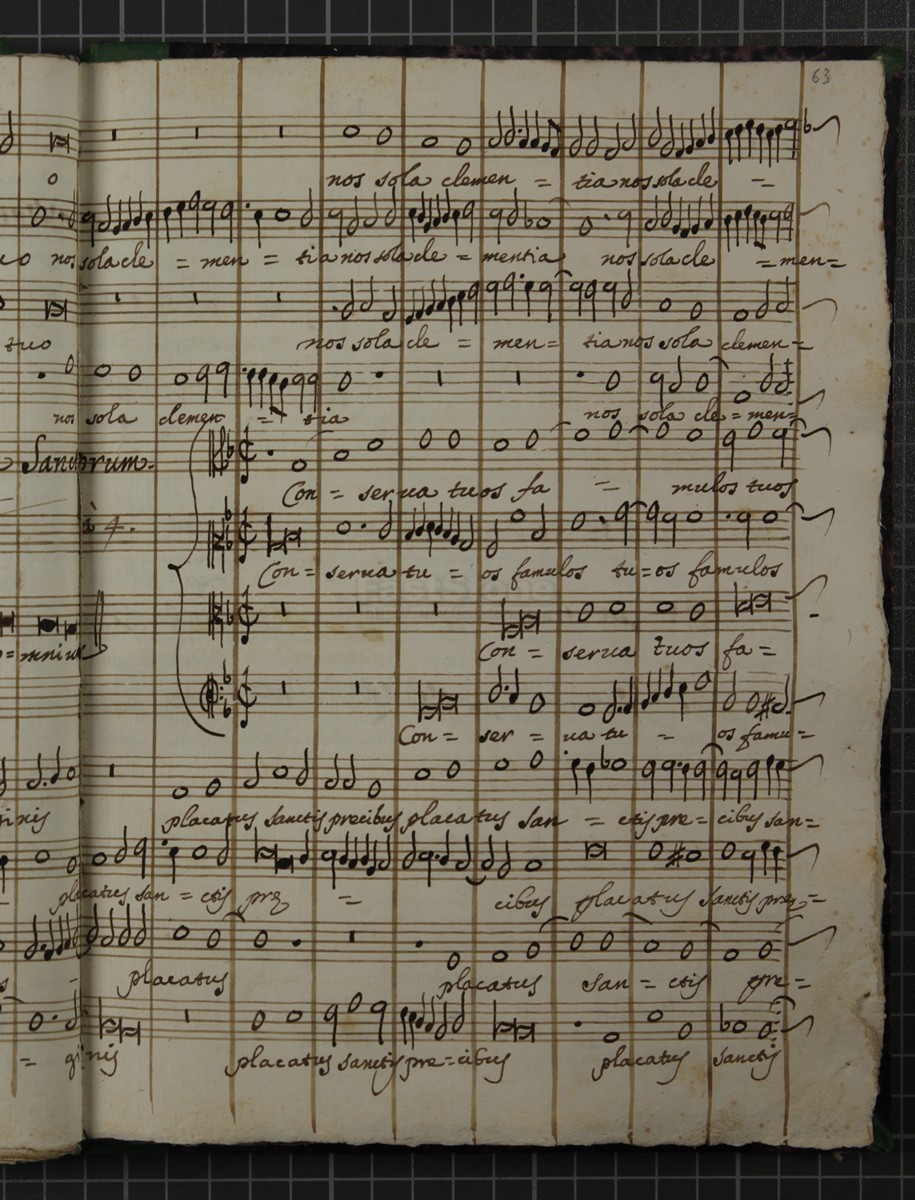 63
nos sola clemen = tia nos sola cle =
nos sola cle = men = tia nos sola cle = mentia nos sola cle = men =
tuo nos sola cle = men = tia nos sola clemen =
nos sola clemen = tia nos sola cle = men =
Sanctorum.
Con = serua tuos fa = mulos tuos
à 4.
Con = serua tu = os famulos tu = os famulos
Con = serua tuos fa =
Con = ser = ua tu = os famu =
placatus sanctis precibus placatus san = ctis pre = cibus san =
placatus san = ctis prę = cibus placatus sanctis prę =
placatus placatus san = ctis pre =
= ginis placatus sanctis pre = cibus placatus sanctis